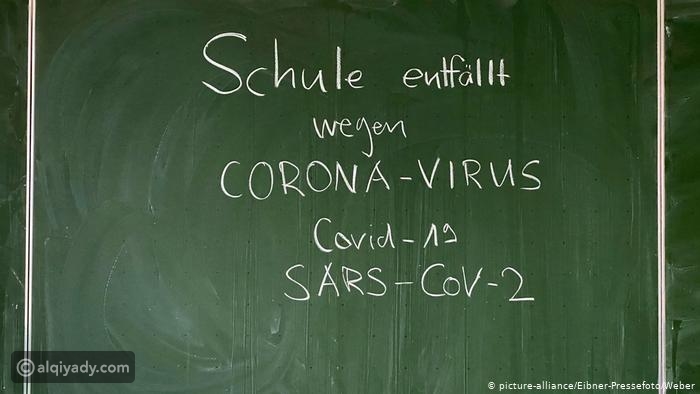 Schule entfällt
wegen
CORONA-VIRUS
Covid-19
SARS-CoV-2
© alqiyady.com
© picture-alliance/Eibner-Pressefoto/Weber